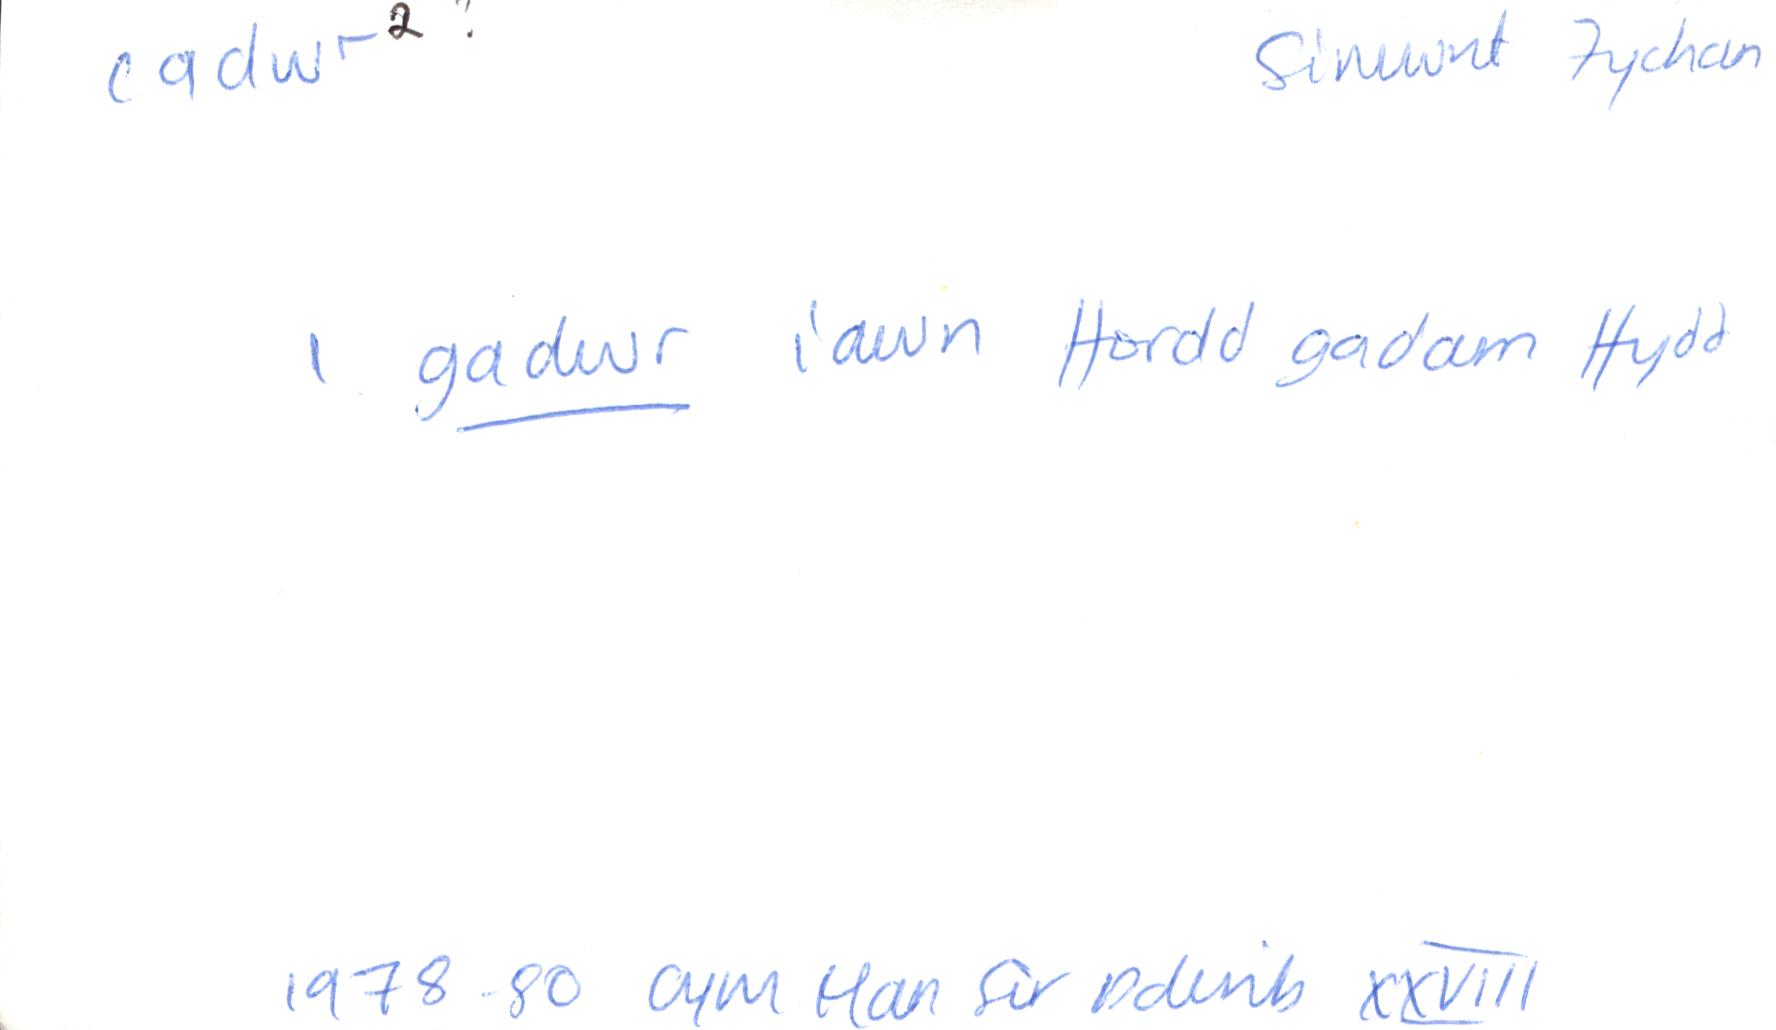 cadwr² ? Simwnt Fychan
I gadwr iawn ffordd gadam ffydd
1978-80 Cym Han Sir Ddinb XXVIII